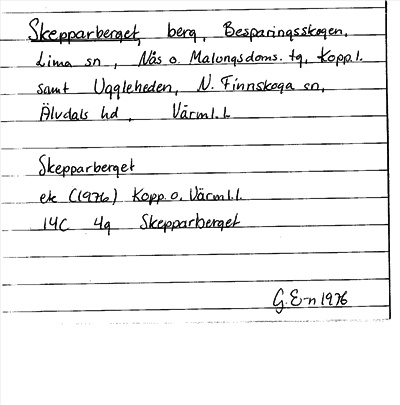 Skepparberget, berg, Besparingsskogen,
Lima sn, Nås o. Malungsdoms. tg, Kopp. l.
samt Uggleheden, N. Finnskoga sn,
Älvdals hd, Värml. l.
Skepparberget
ek (1976) Kopp. o. Värml. l.
14C 4g Skepparberget
G. E-n 1976